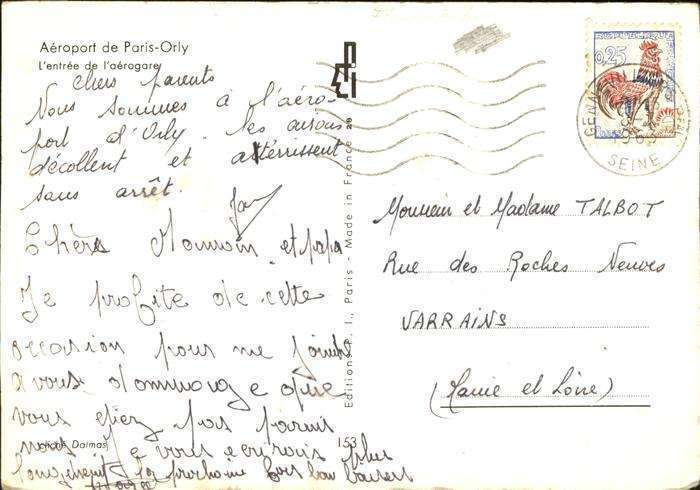 Aéroport de Paris-Orly
L'entrée de l'aérogare
chers parents
Nous sommes à l'aéro-
port d'Orly. les avions
décollent et atterrissent
sans arrêt.
Chère Maman et papa
Je profite de cette
occasion pour me joindre
a vous dommage que
vous etiez pas parmis
nous Je vous ecrirais plus
longement la prochaine fois bon baisers
cliché Dalmas
153
Editions P. I., Paris - Made in France
REPUBLIQUE FRANCAISE
0,25
SEINE
Monsieur et Madame TALBOT
Rue des Roches Neuves
VARRAINS
(Maine et Loire)